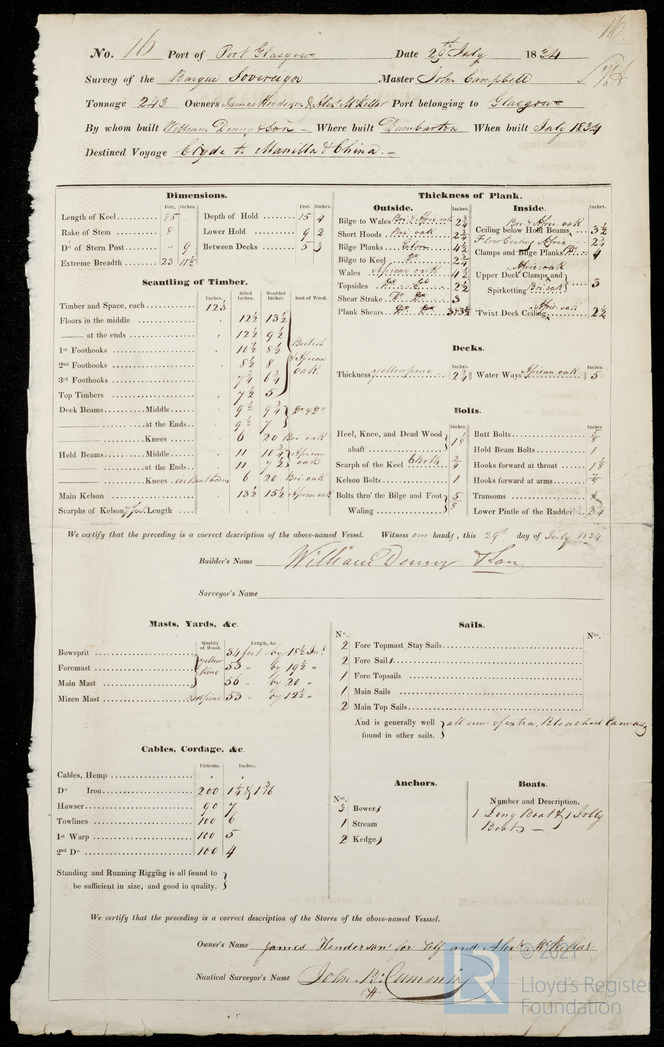 16
No. 16 Port of Port Glasgow Date 29th July 1834
Survey of the Barque Sovereign Master John Campbell
Tonnage 243 Owners James Henderson & Alexr McKellar Port belonging to Glasgow
By whom built William Denny & Son Where built Dumbarton When built July 1834
Destined Voyage Clyde to Manilla & China.
Dimensions.
Feet. Inches. Feet. Inches.
Length of Keel 85 Depth of Hold 15 4
Rake of Stem 8 Lower Hold 9 2
Do of Stern Post " 9 Between Decks 5 3
Extreme Breadth 23 11½
Scantling of Timber.
Inches. Sided Inches. Moulded Inches. Sort of Wood.
Timber and Space, each 12¾
Floors in the middle 12½ 13½
—— at the ends 12½ 9½
1st Foothooks 10½ 8½
2nd Foothooks 8½ 8
3rd Foothooks 7¾ 6¾
British & African Oak
Top Timbers 7½ 5
Deck Beams Middle 9½ 9¾ Do & Do
at the Ends 9½ 7
Knees 6 20 Bri oak
Hold Beams Middle 11 10¾ African oak
at the Ends 11 7½
Knees 6 20 Bri oak
Main Kelson 13½ 15½ African oak
Scarphs of Kelson Length
Thickness of Plank.
Outside.
Inches.
Bilge to Wales Bri & Afric oak 2¾
Short Hoods Bri oak 2¾
Bilge Planks 4½
Bilge to Keel Do 2¾
Wales African oak 4½
Topsides Do Do 2½
Shear Strake Do Do 3
Plank Shears Do Do
Inside.
Inches.
Bri & Afric oak
Ceiling below Hold Beams 3½
Floor Ceiling Afric 2½
Clamps and Bilge Planks Do 4
Afric oak
Upper Deck Clamps and
Spirketting Bri oak 3
'Twixt Deck Ceiling Afric oak 2½
Decks.
Inches. Inches.
Thickness yellow pine 2¾ Water Ways African oak 5
Bolts.
Inches. Inches.
Heel, Knee, and Dead Wood
abaft 1⅛
Scarph of the Keel 6 Both ¾
Kelson Bolts 1
Bolts thro' the Bilge and Foot
Waling ⅝
Butt Bolts ⅝
Hold Beam Bolts 1
Hooks forward at throat 1⅛
Hooks forward at arms
Transoms
Lower Pintle of the Rudder 2¾
We certify that the preceding is a correct description of the above-named Vessel. Witness our hands, this 29th day of July 1834
Builder's Name William Denny & Son
Surveyor's Name
Masts, Yards, &c.
Quality of Wood. Length, &c.
Bowsprit 34 feet by 18½ Ins
Foremast yellow pine 53 " by 19½ "
Main Mast 56 " by 20 "
Mizen Mast red pine 53 " by 12½ "
Sails.
No. No.
2 Fore Topmast Stay Sails
2 Fore Sails
1 Fore Topsails
1 Main Sails
2 Main Top Sails
And is generally well
found in other sails.
all new of extra Bleached Canvas
Cables, Cordage, &c.
Fathoms. Inches.
Cables, Hemp
Do Iron 200 1¼ & 1 3/16
Hawser 90 7
Towlines 100 6
1st Warp 100 5
2nd Do 100 4
Standing and Running Rigging is all found to
be sufficient in size, and good in quality.
Anchors.
Nos.
3 Bowers
1 Stream
2 Kedges
Boats.
Number and Description.
1 Long Boat & 1 Jolly
Boat
We certify that the preceding is a correct description of the Stores of the above-named Vesssel.
Owner's Name James Henderson for Self and Alexr McKellar
Nautical Surveyor's Name John Br Cumming
LR
© 2021
Lloyd's Register
Foundation